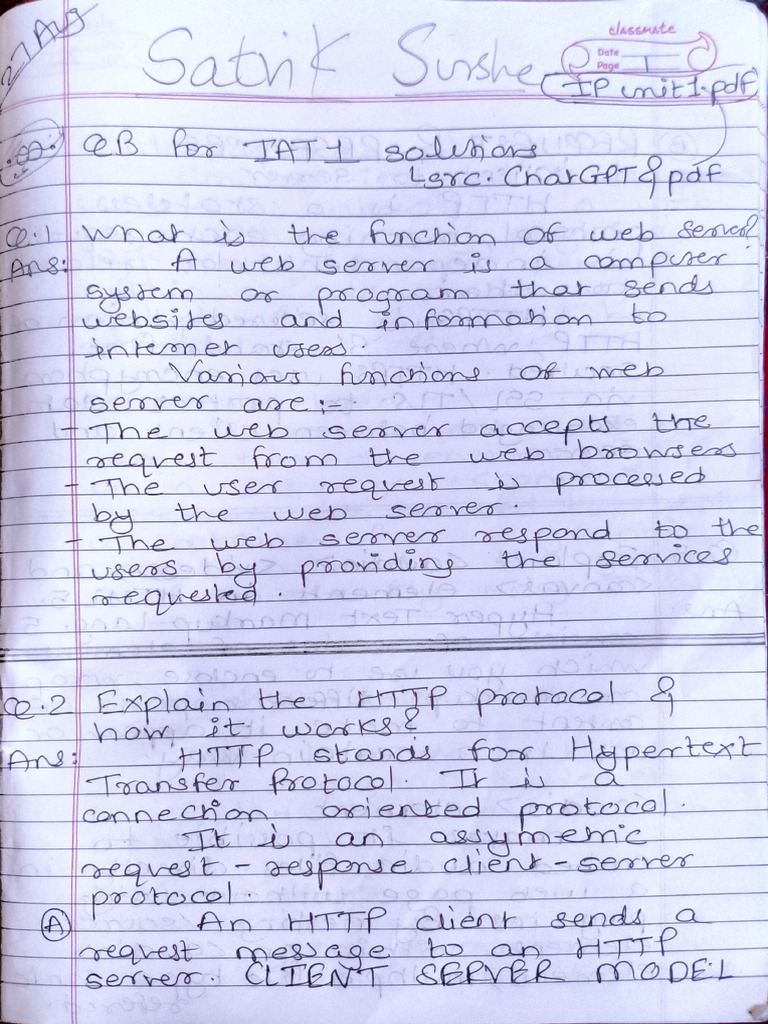 27 Aug
classmate
Date
Page 1
Satvik Surshe
IP unit 1.pdf
QB for IAT 1 solutions
src. ChatGPT & pdf
Q.1 What is the function of web server?
Ans: A web server is a computer
system or program that sends
websites and information to
internet users.
Various functions of web
server are:-
- The web server accepts the
request from the web browsers
- The user request is processed
by the web server.
- The web server respond to the
users by providing the services
requested.
Q.2 Explain the HTTP protocol &
how it works?
Ans: HTTP stands for Hypertext
Transfer Protocol. It is a
connection oriented protocol.
It is an assymetric
request - response client - server
protocol.
A An HTTP client sends a
request message to an HTTP
server. CLIENT SERVER MODEL